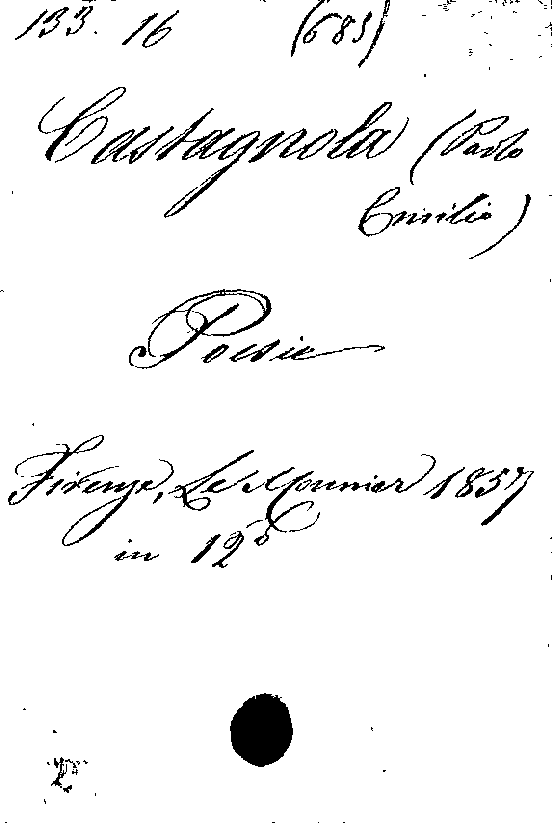 133. 16 (685)
Castagnola (Paolo
Emilio)
Poesie
Firenze, Le Monnier 1857
in 12º